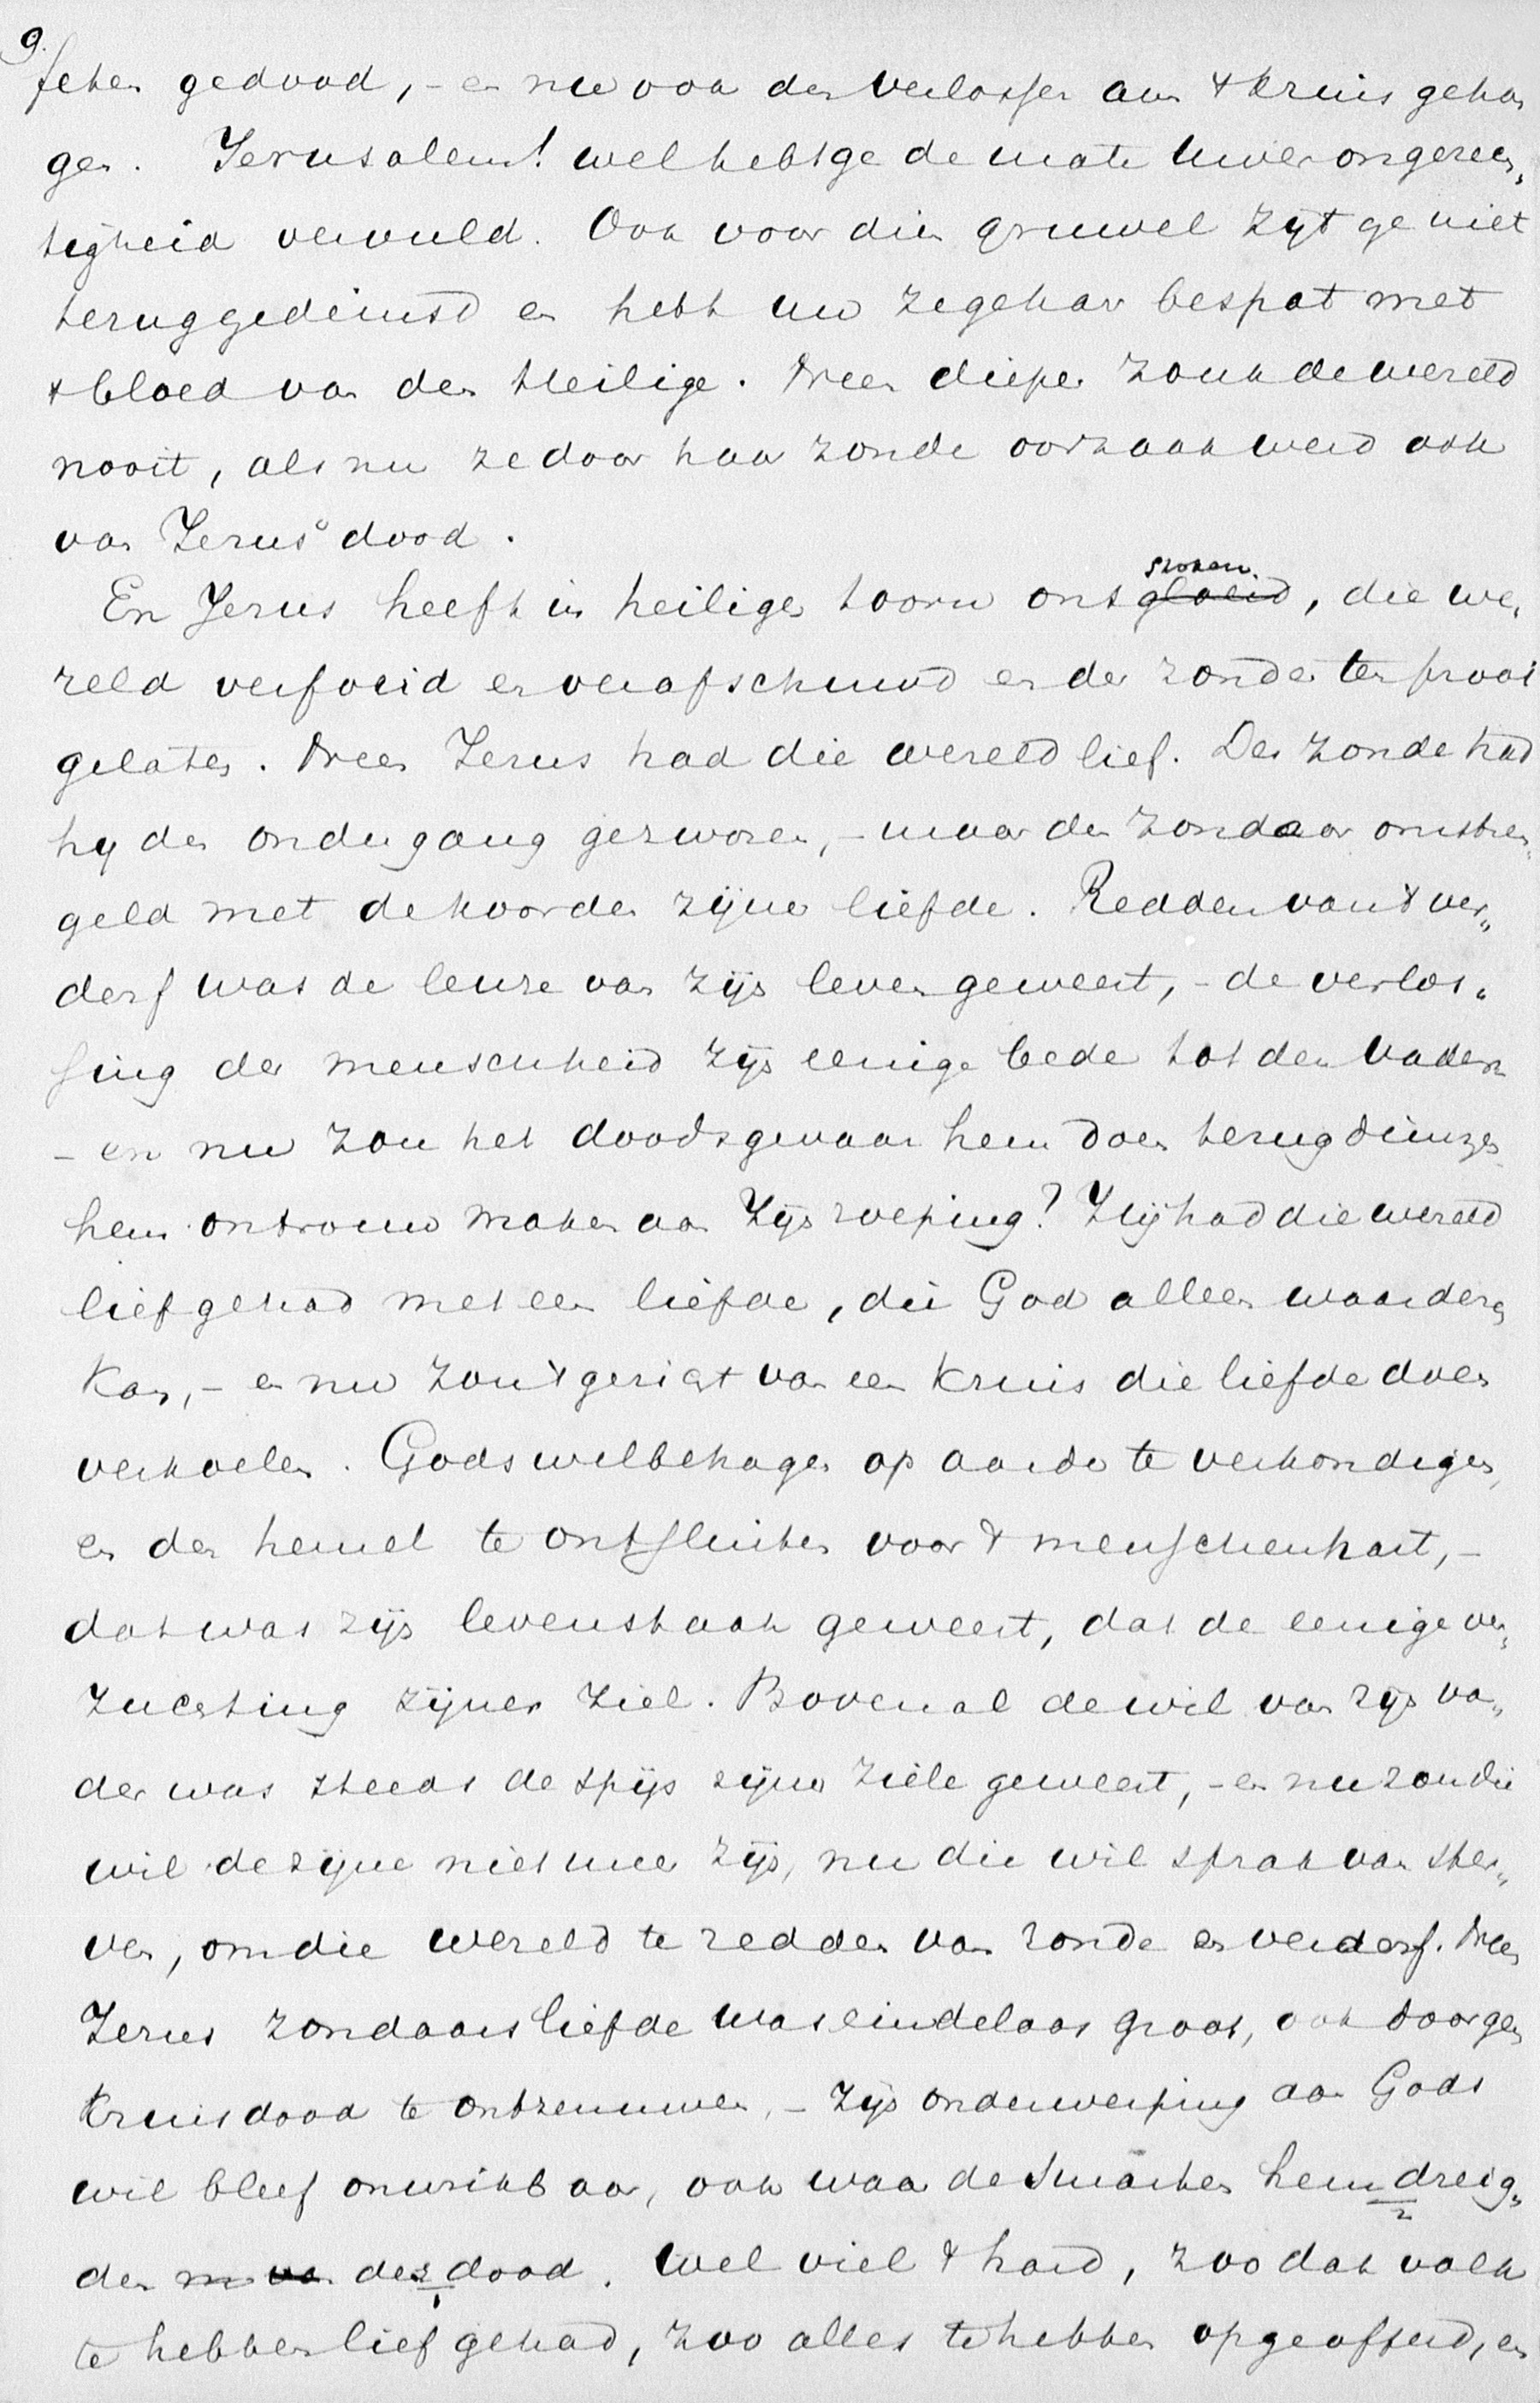 9.
feten gedood, - en nu ook den verlosser aan 't kruis gehan
gen. Jerusalem! wel hebt ge de mate uwer ongerech„
tigheid vervuld. Ook voor dien gruwel zijt ge niet
teruggedeinsd en hebt uw zegekar bespat met
't bloed van den Heilige. Neen dieper zonk de wereld
nooit, als nu ze door haar zonde oorzaak werd ook
van Jezus' dood.
En Jezus heeft in heiligen toorn ontgloeid stoken, die we„
reld verfoeid en verafschuwd en der zonde ten prooi
gelaten. Neen Jezus had die wereld lief. Der zonde had
hij den ondergang gezworen, - maar den zondaar omstren„
geld met de koorden zijner liefde. Redden van 't ver„
derf was de leuze van zijn leven geweest, - de verlos„
sing der menschheid zijn eenige bede tot den vader
- en nu zou het doodsgevaar hem doen terugdeinzen
hem ontrouw maken aan zijn roeping? Hij had die wereld
liefgehad met een liefde, die God alleen waarderen
kan, - en nu zou 't gezigt van een kruis die liefde doen
verkoelen. Gods welbehagen op aarde te verkondigen,
en den hemel te ontsluiten voor 't menschenhart, -
dat was zijn levenstaak geweest, dat de eenige ver„
zuchting zijner ziel. Bovenal de wil van zijn va„
der was steeds de spijs zijner ziele geweest, - en nu zou die
wil de zijne niet meer zijn, nu die wil sprak van ster„
ven, om die wereld te redden van zonde en verderf. Neen
Jezus zondaarsliefde was eindeloos groot, ook door geen
kruisdood te ontzenuwen, - zijn onderwerping aan Gods
wil bleef onwrikbaar, ook waar de smarten hem dreig„
den m va des doods. Wel viel 't hard, zoo dat volk
te hebben liefgehad, zoo alles te hebben opgeofferd, en